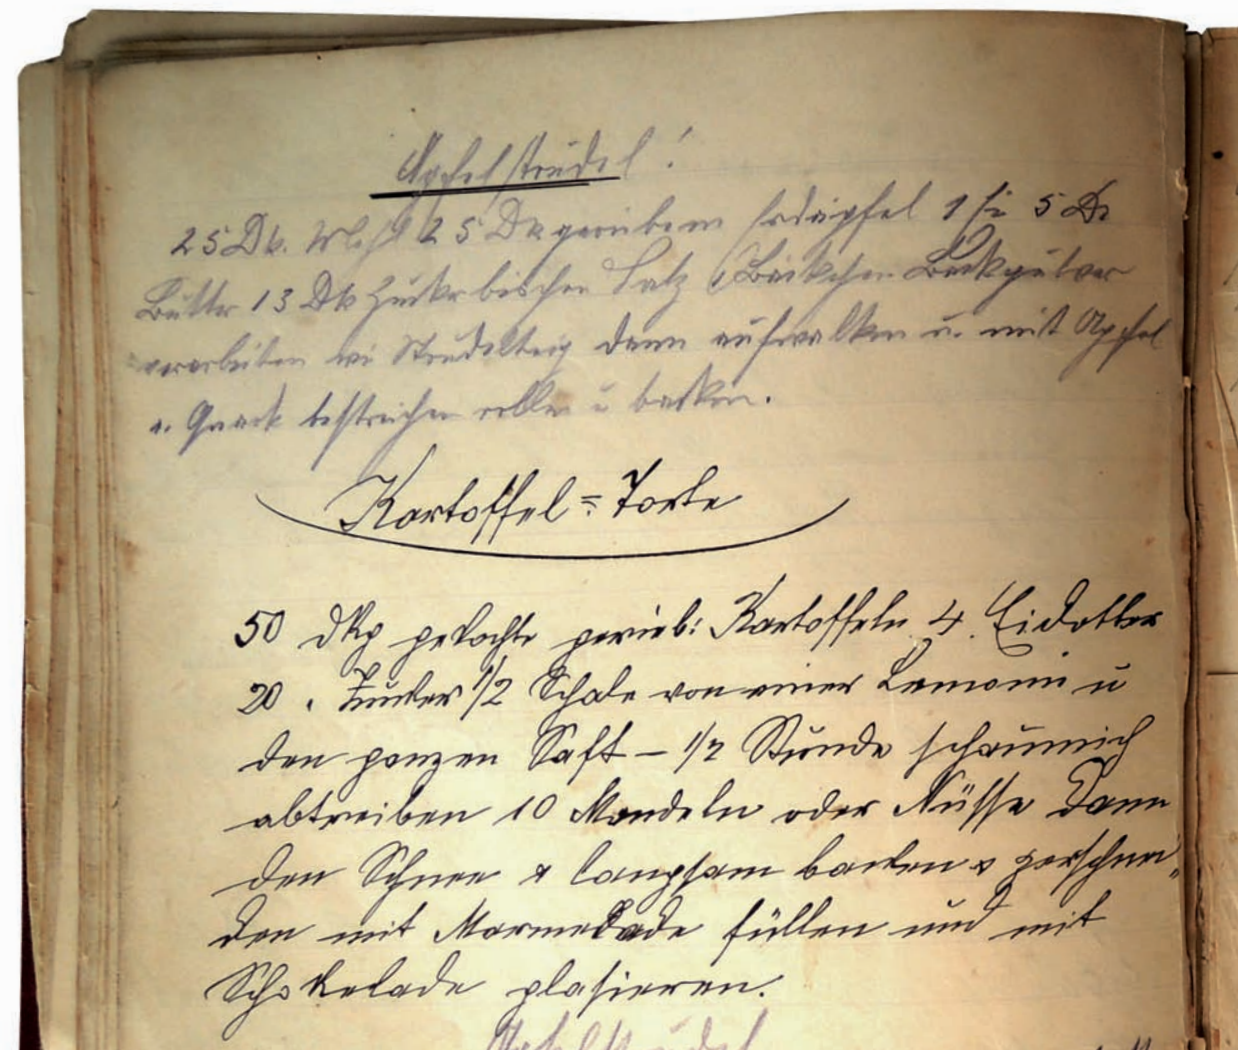 Apfelstrudel!
25 Dk. Mehl 25 Dk geriebem Erdäpfel 1 Ei 5 Dk
Butter 13 Dk Zucker bischen Salz 1 Päckchen Backpulver
verarbeiten wi Strudelteig dann auswalken u. mit Apfel
o. Quark bestreichen rollen u backen.
Kartoffel=Torte
50 dkg gekochte gerieb: Kartoffeln 4 Eidotter
20 " Zucker 1/2 Schale von einer Lemoni u
den ganzen Saft – 1/2 Stunde schaumich
abtreiben 10 Mandeln oder Nüsse Dann
den Schnee & langsam backen & zerschnei„
den mit Marmelade füllen und mit
Schokelade glasieren.
Apfelstrudel